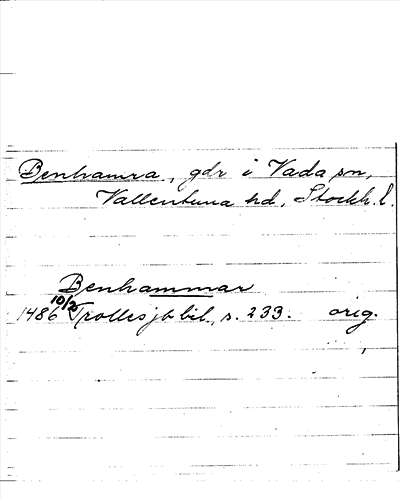 Benhamra, gdr i Vada sn,
Vallentuna hd, Stockh. l.
Benhammar
1486 10/2 Trollesjb bil, s. 233. orig.